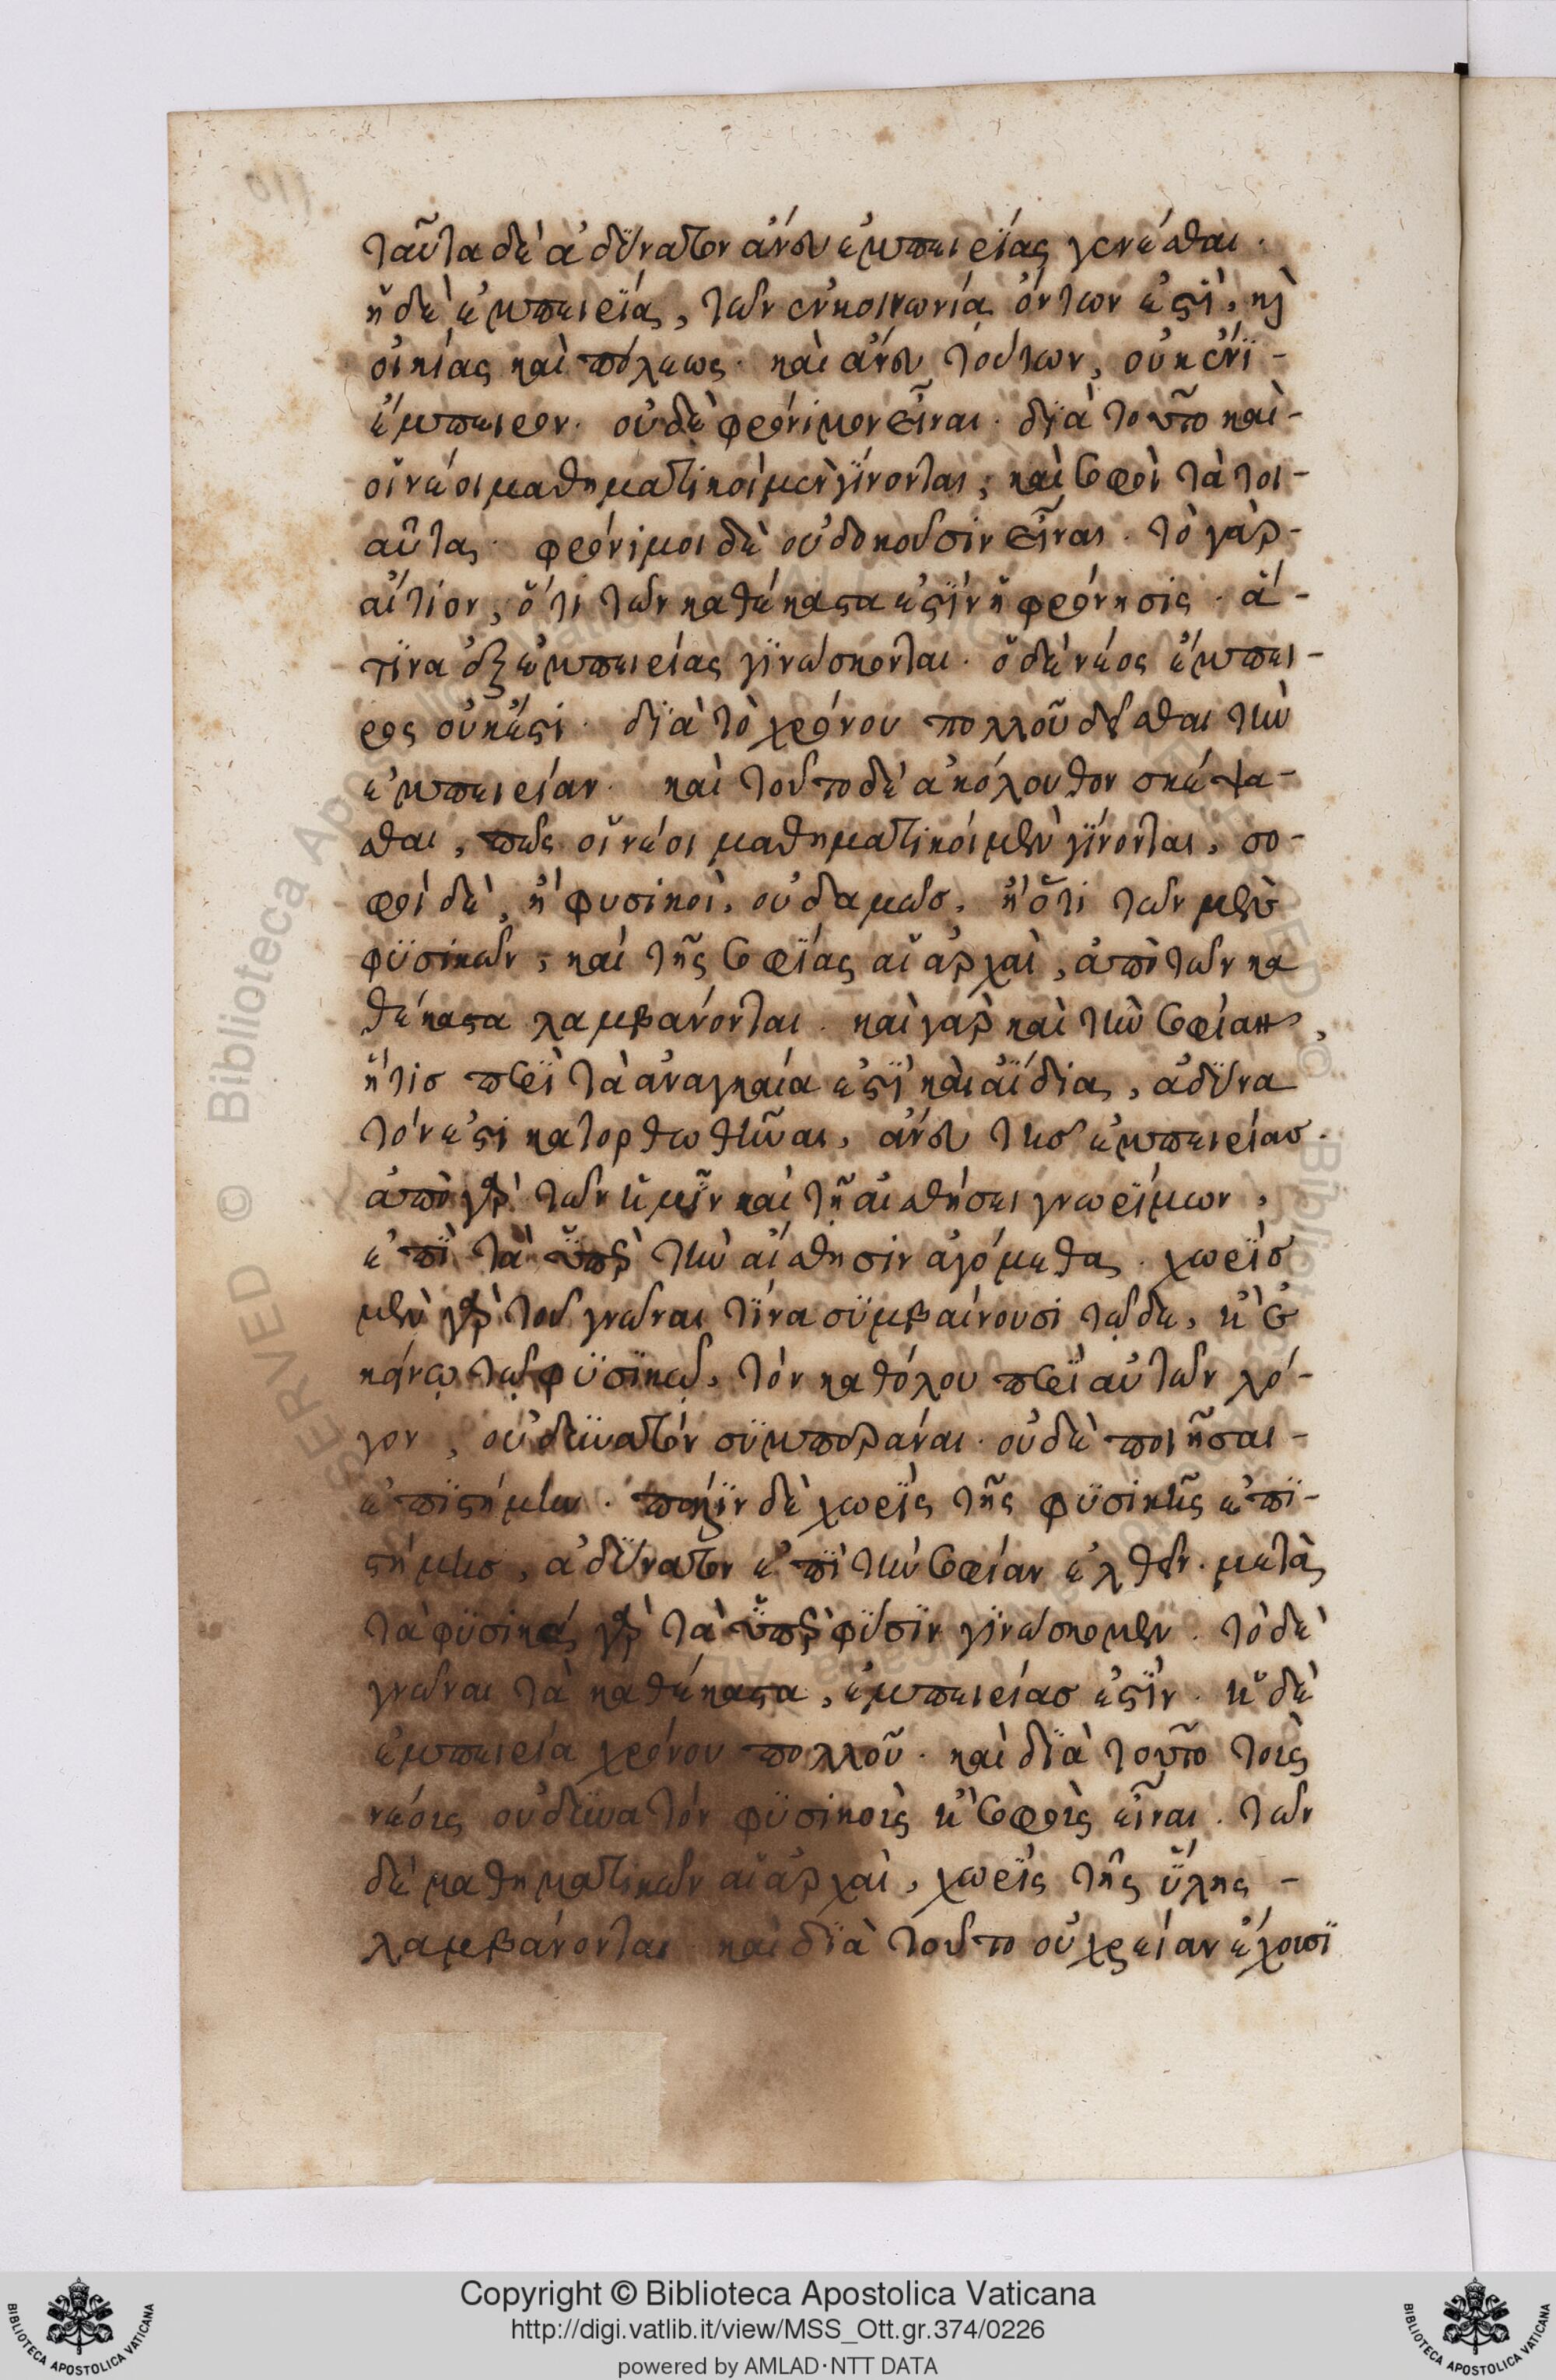 ταῦτα δὲ ἀδύνατον ἄνευ ἐμπειρίας γενέσθαι.
ἡ δὲ ἐμπειρία, τῶν ἐν κοινωνία ὄντων ἐστὶ, κỳ
οἰκίας καὶ πόλεως. καὶ ἄνευ τούτων, οὐκ ἔνι-
ἔμπειρον. οὐδὲ φρόνιμον εἶναι. διὰ τοῦτο καὶ-
οἱ νέοι μαθηματικοὶ μὲν γίνονται, καὶ σοφοὶ τὰ τοι-
αῦτα. φρόνιμοι δὲ οὐ δοκοῦσιν εἶναι. τὸ γὰρ-
αἴτιον, ὅτι τῶν καθέκαστα ἐστὶν ἡ φρόνησις. ἅ-
τινα ἐξ ἐμπειρίας γινώσκονται. ὁ δὲ νέος ἔμπει-
ρος οὐκ ἔστι. διὰ τὸ χρόνου πολλοῦ δεῖσθαι τὴν
ἐμπειρίαν. καὶ τοῦτο δὲ ἀκόλουθον σκέψα-
σθαι, πῶς οἱ νέοι μαθηματικοὶ μὲν γίνονται, σο-
φοὶ δὲ, ἢ φυσικοὶ, οὐδαμῶς. ἢ ὅτι τῶν μὲν
φυσικῶν, καὶ τῆς σοφίας αἱ ἀρχαὶ, ἀπὸ τῶν κα
θέκαστα λαμβάνονται. καὶ γὰρ καὶ τὴν σοφίαν,
ἥτις περὶ τὰ ἀναγκαῖα ἐστὶ καὶ ἀΐδια, ἀδύνα
τόν ἐστι κατορθωθῆναι, ἄνευ τῆς ἐμπειρίας.
ἀπὸ γὰρ τῶν ἡμῖν καὶ τῇ αἰσθήσει γνωρίμων,
ἐπὶ τὰ ὑπὲρ τὴν αἴσθησιν ἀγόμεθα. χωρὶς
μὲν γὰρ τοῦ γνῶναι τίνα συμβαίνουσι τῷδε, ἢ ἐ
κείνῳ τῷ φυσικῷ, τὸν καθόλου περὶ αὐτῶν λό-
γον, οὐ δυνατόν συμπεράναι. οὐδὲ ποιῆσαι-
ἐπιστήμην. πάλιν δὲ χωρὶς τῆς φυσικῆς ἐπι-
στήμης, ἀδύνατον ἐπὶ τὴν σοφίαν ἐλθεῖν. μετὰ
τὰ φυσικὰ γὰρ τὰ ὑπὲρ φύσιν γινώσκομεν. τὸ δὲ
γνῶναι τὰ καθέκαστα, ἐμπειρίας ἐστίν. ἡ δὲ
ἐμπειρία χρόνου πολλοῦ. καὶ διὰ τοῦτο τοὶς
νέοις οὐ δυνατόν φυσικοὶς ἢ σοφοὶς εἶναι. τῶν
δὲ μαθηματικῶν αἱ ἀρχαὶ, χωρὶς τῆς ὕλης-
λαμβάνονται. καὶ διὰ τοῦτο οὐ χρείαν ἔχουσι
Copyright © Biblioteca Apostolica Vaticana
http://digi.vatlib.it/view/MSS_Ott.gr.374/0226
powered by AMLAD·NTT DATA
BIBLIOTECA APOSTOLICA VATICANA
BIBLIOTECA APOSTOLICA VATICANA